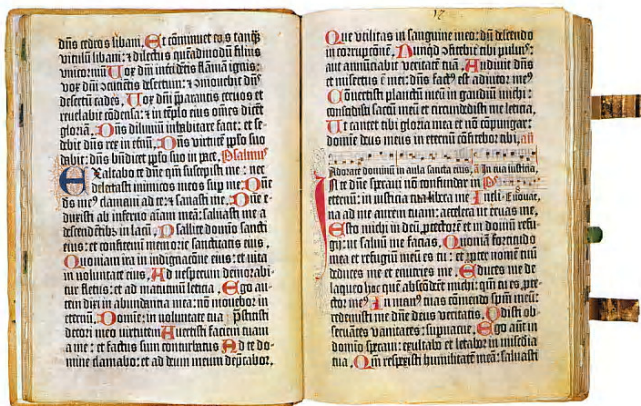 dn̄s cedros libani. Et cōminuet eas tanq̄
vitulū libani: ⁊ dilectus quēadmodū filius
vnicorniū Uox dn̄i intercidētis flāmā ignis:
vox dn̄i cōcutiētis desertum: ⁊ cōmouebit dn̄s
desertū cades. Uox dn̄i p̄parantis ceruos et
reuelabit cōdensa: ⁊ in tēplo eius om̄es dicēt
gloriā. Dn̄s diluuiū inhabitare facit: et se-
debit dn̄s rex in etnū. Dn̄s virtutē pplo suo
dabit: dn̄s bn̄dicet pplo suo in pace. Psalmus
Exaltabo te dn̄e qm̄ suscepisti me: nec
delectasti inimicos meos sup me. Dn̄e
ds meꝰ clamaui ad te: ⁊ sanasti me. Dn̄e e-
duxisti ab inferno aīam meā: saluasti me a
descendētibꝫ in lacū. Psallite domīo sancti
eius: et confitemī memorie sanctitatis eius.
Quoniam ira in indignatōne eius: et vita
in voluntate eius. Ad vesperum demorabi-
tur fletus: et ad matutinū leticia. Ego au-
tem dixi in abundantia mea: nō mouebor in
eternū. Domine: in voluntate tua p̄stitisti
decori meo virtutem Auertisti faciem tuam
a me: et factus sum conturbatus Ad te do-
mine clamabo: et ad deum meum deprcabor.
Que vtilitas in sanguine meo: dū descendo
in corruptionē. Nunqd ꝯfitebit tibi puluis:
aut annūciabit veritatē tuā. Audiuit dn̄s
et misertus ē mei: dn̄s factꝰ est adiutor meꝰ
Conuertisti planctū meū in gaudiū michi:
conscidisti saccū meū et circundedisti me leticia.
Ut cantet tibi gloria mea et nō cōpungar:
domīe deus meus in eternū cōfitebor tibi. añ
Adorate dominū in aula sancta eius. a In tua iusticia.
In te dn̄e speraui nō confundar in Ps
eternū: in iusticia tua libera me Incli-
na ad me aurem tuam: accelera vt eruas me.
Esto michi in deū ꝓtectorē et in domū refu-
gij: vt saluū me facias. Quoniā fortitudo
mea et refugiū meū es tu: et ꝓpter nomē tuū
deduces me et enutries me. Educes me de
laqueo hoc quē absconderūt michi: qm̄ tu es ꝓte-
ctor meꝰ In manꝰ tuas cōmendo spm̄ meū:
redemisti me dn̄e deus veritatis. Odisti ob-
seruātes vanitates: supuacue. Ego aūt in
domīo speraui: exultabo et letabor in misedia
tua. Qm̄ respexisti humilitatē meā: saluasti